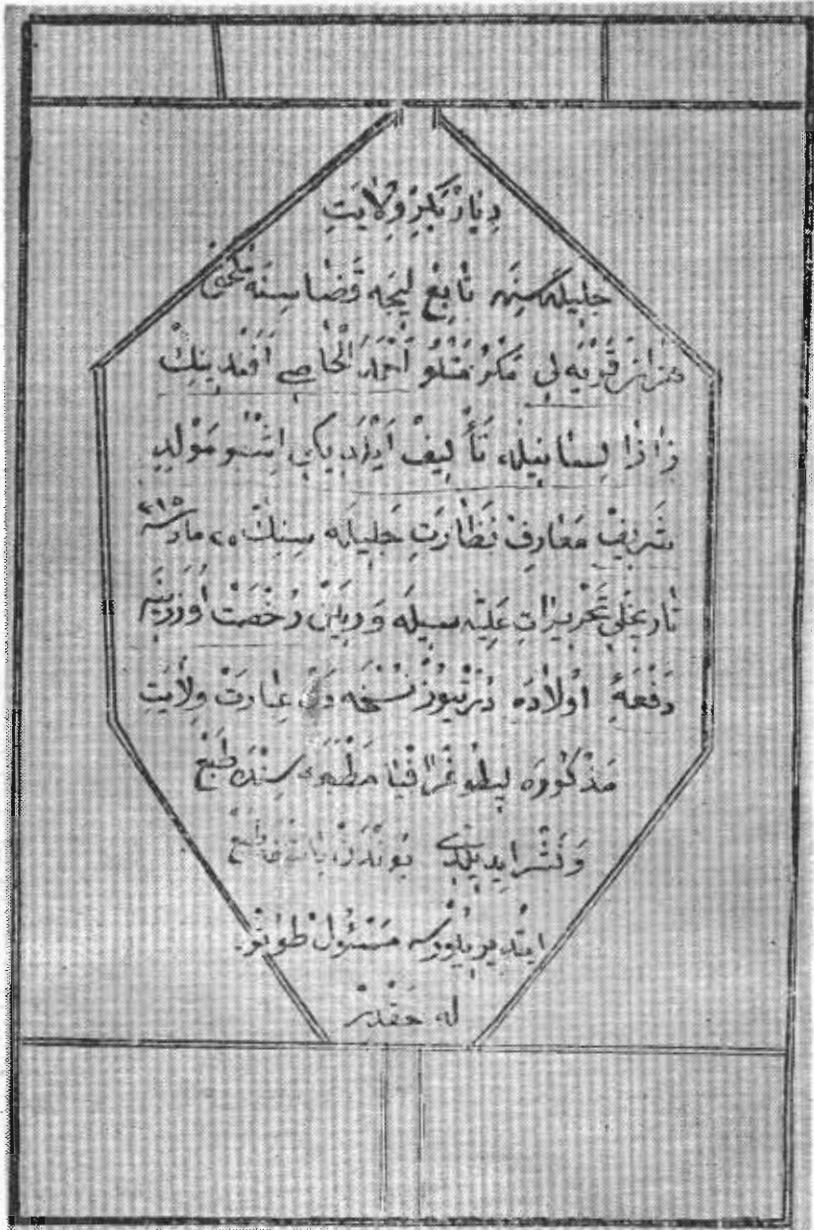 دِيَارْ بَكِرْ وِلَايَتِ
جَلِيلَه سِنَه تَابِعْ لِيجَه قَضَا سِنَه مُلْحَقْ
هزان قَرْيَه لِى مَكْرُمَتْلُو أَحْمَدُ الْخَاصِى أَفَنْدِينِكْ
زَازَا لِسَانِيلَه تَأْلِيفْ اَيْلَدِيكِى اِشْبُو مَوْلِدِ
شَرِيفْ مَعَارِفْ نَظَارَتِ جَلِيلَه سِنِكْ ٢٠ مارت سنه ٣١٥
تَارِيخْلِى تَحْرِيرَاتِ عَلِيَّه سِيلَه وَرِيلَنْ رُخْصَتْ اُوزَرِينَه
دَفْعَۀ اُولَادَه دُرْتْيُوزْ نُسْخَه دَنْ عِبَارَتْ وِلَايَتِ
مَذْكُورَه لِيطُوغْرَافْيَا مَطْبَعَه سِنْدَه طَبْعْ
وَنَشْر اِيدِيلْدِى بُونْدَنْ بَاشْقَه طَبْعْ
ايتديريلورسه مَسْئُولْ طُوتُو
لَه جَقْدِرْ